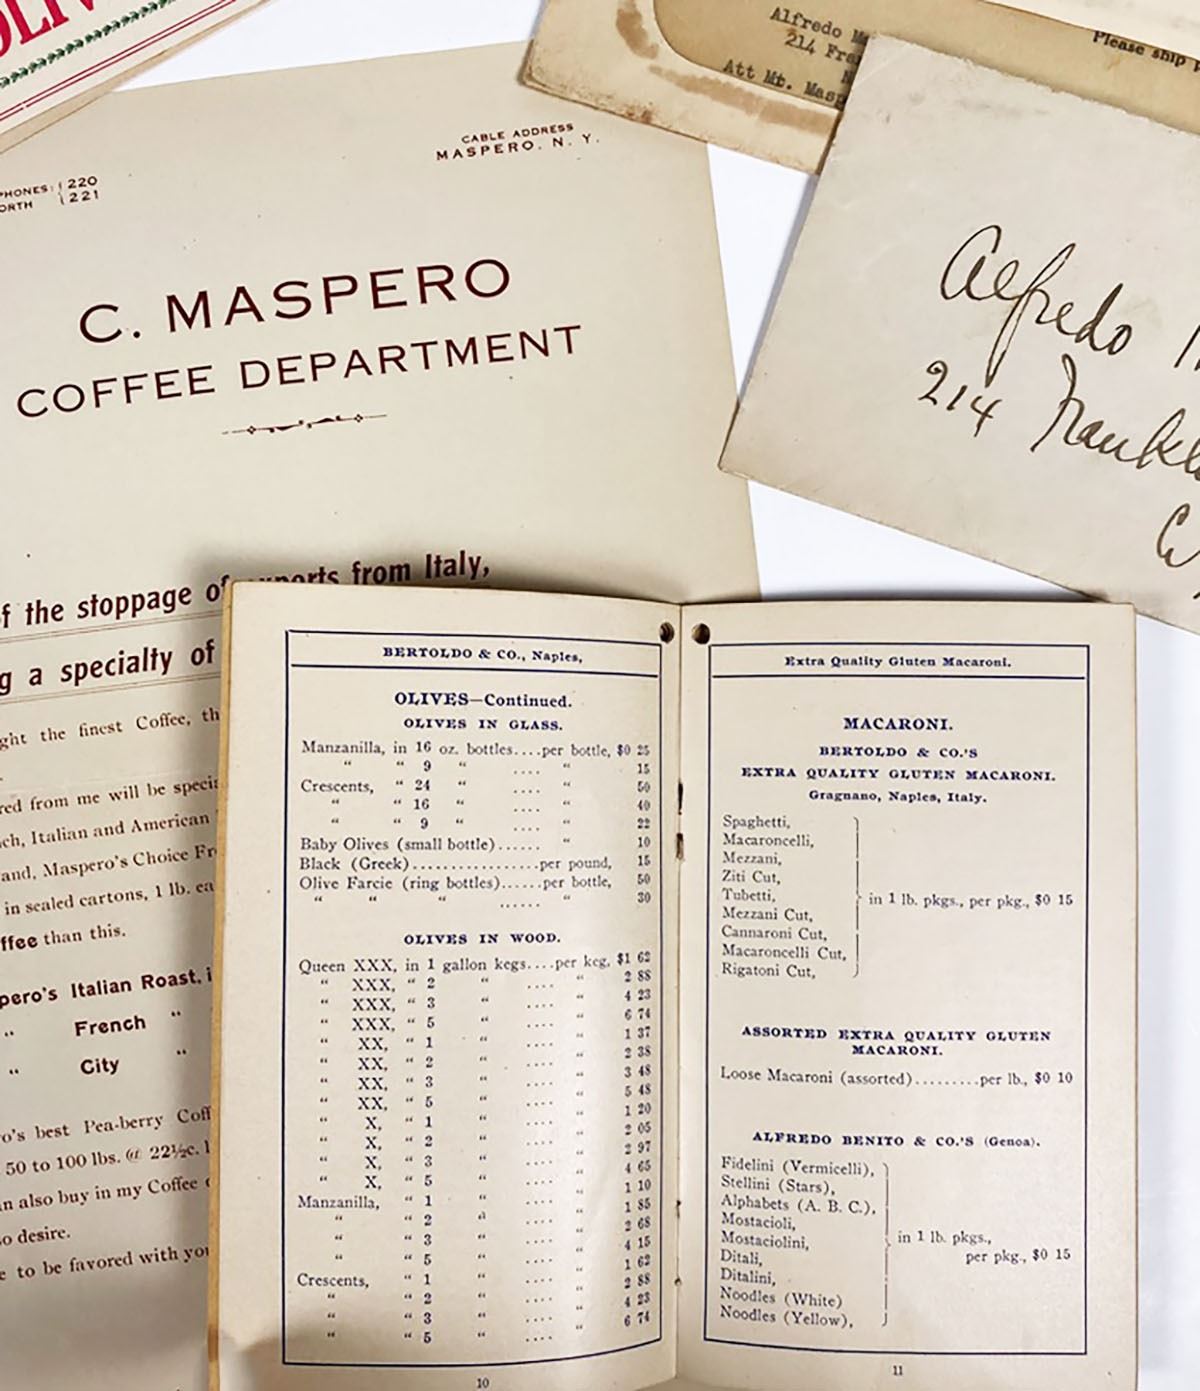 Alfredo
214
Att Mt.
Please ship
PHONES: 220
ORTH 221
CABLE ADDRESS
MASPERO, N. Y.
C. MASPERO
COFFEE DEPARTMENT
f the stoppage of exports from Italy,
g a specialty of
ght the finest Coffee, th
red from me will be specia
ch, Italian and American
and, Maspero's Choice Fr
in sealed cartons, 1 lb. ea
ffee than this.
pero's Italian Roast, i
" French "
" City "
o's best Pea-berry Coff
50 to 100 lbs. @ 22½c. l
n also buy in my Coffee
o desire.
e to be favored with you
Alfredo
214 Frankl
BERTOLDO & CO., Naples,
OLIVES—Continued.
OLIVES IN GLASS.
Manzanilla, in 16 oz. bottles....per bottle, $0 25
" " 9 " .... " 15
Crescents, " 24 " .... " 50
" " 16 " .... " 40
" " 9 " .... " 22
Baby Olives (small bottle)...... " 10
Black (Greek)..................per pound, 15
Olive Farcie (ring bottles)......per bottle, 50
" " " ...... " 30
OLIVES IN WOOD.
Queen XXX, in 1 gallon kegs....per keg, $1 62
" XXX, " 2 " .... " 2 88
" XXX, " 3 " .... " 4 23
" XXX, " 5 " .... " 6 74
" XX, " 1 " .... " 1 37
" XX, " 2 " .... " 2 38
" XX, " 3 " .... " 3 48
" XX, " 5 " .... " 5 48
" X, " 1 " .... " 1 20
" X, " 2 " .... " 2 05
" X, " 3 " .... " 2 97
" X, " 5 " .... " 4 65
Manzanilla, " 1 " .... " 1 10
" " 2 " .... " 1 85
" " 3 " .... " 2 68
" " 5 " .... " 4 15
Crescents, " 1 " .... " 1 62
" " 2 " .... " 2 88
" " 3 " .... " 4 23
" " 5 " .... " 6 74
10
Extra Quality Gluten Macaroni.
MACARONI.
BERTOLDO & CO.'S
EXTRA QUALITY GLUTEN MACARONI.
Gragnano, Naples, Italy.
Spaghetti,
Macaroncelli,
Mezzani,
Ziti Cut,
Tubetti, in 1 lb. pkgs., per pkg., $0 15
Mezzani Cut,
Cannaroni Cut,
Macaroncelli Cut,
Rigatoni Cut,
ASSORTED EXTRA QUALITY GLUTEN
MACARONI.
Loose Macaroni (assorted).........per lb., $0 10
ALFREDO BENITO & CO.'S (Genoa).
Fidelini (Vermicelli),
Stellini (Stars),
Alphabets (A. B. C.),
Mostacioli,
Mostaciolini, in 1 lb. pkgs.,
Ditali, per pkg., $0 15
Ditalini,
Noodles (White)
Noodles (Yellow),
11